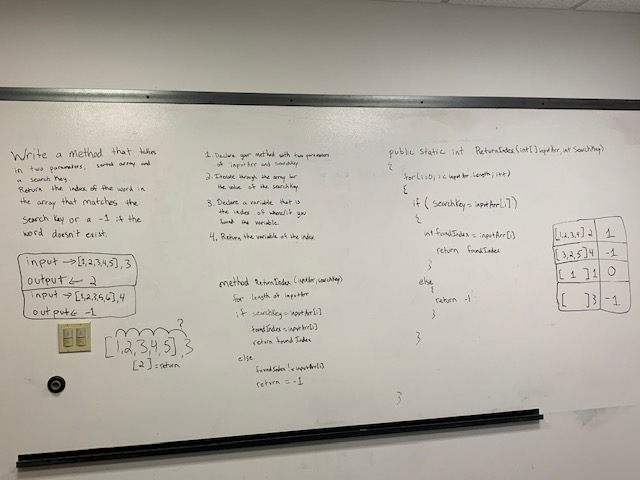 Write a method that takes
in two parameters, sorted array and
a search key.
Return the index of the word in
the array that matches the
search key or a -1 if the
word doesn't exist.
input → [1,2,3,4,5], 3
output ← 2
input → [1,2,3,5,6], 4
output ← -1
?
[1,2,3,4,5], 3
[2] = return
1. Declare your method with two parameters
of inputArr and searchkey
2. Iterate through the array for
the value of the searchkey.
3. Declare a variable that is
the index of where/if you
found the variable.
4. Return the variable of the index
method ReturnIndex (inputArr, searchkey)
for length of inputArr
if searchkey = inputArr[i]
foundIndex = inputArr[i]
return foundIndex
else
foundIndex != inputArr[i]
return = -1
public static int ReturnIndex (int[] inputArr, int SearchKey)
{
for(i=0; i < inputArr.length; i++)
{
if ( searchkey = inputArr[i])
{
int foundIndex = inputArr[i]
return foundIndex
}
else
{
return -1
}
}
}
[1,2,3,4] 2 1
[3,2,5] 4 -1
[ 1 ] 1 0
[ ] 3 -1